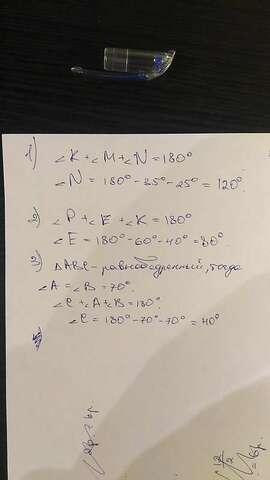 1)
∠K + ∠M + ∠N = 180°
∠N = 180° - 35° - 25° = 120°.
2)
∠P + ∠E + ∠K = 180°
∠E = 180° - 60° - 40° = 80°
3)
△ABC - равнобедренный, тогда
∠A = ∠B = 70°.
∠C + ∠A + ∠B = 180°.
∠C = 180° - 70° - 70° = 40°